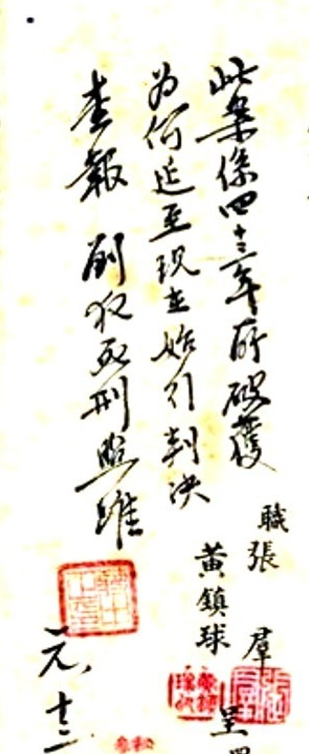 此案係四十三年所破獲
為何延至現在始行判決
查報 劉犯死刑照准
元、十二
職張 羣
黃鎮球
呈